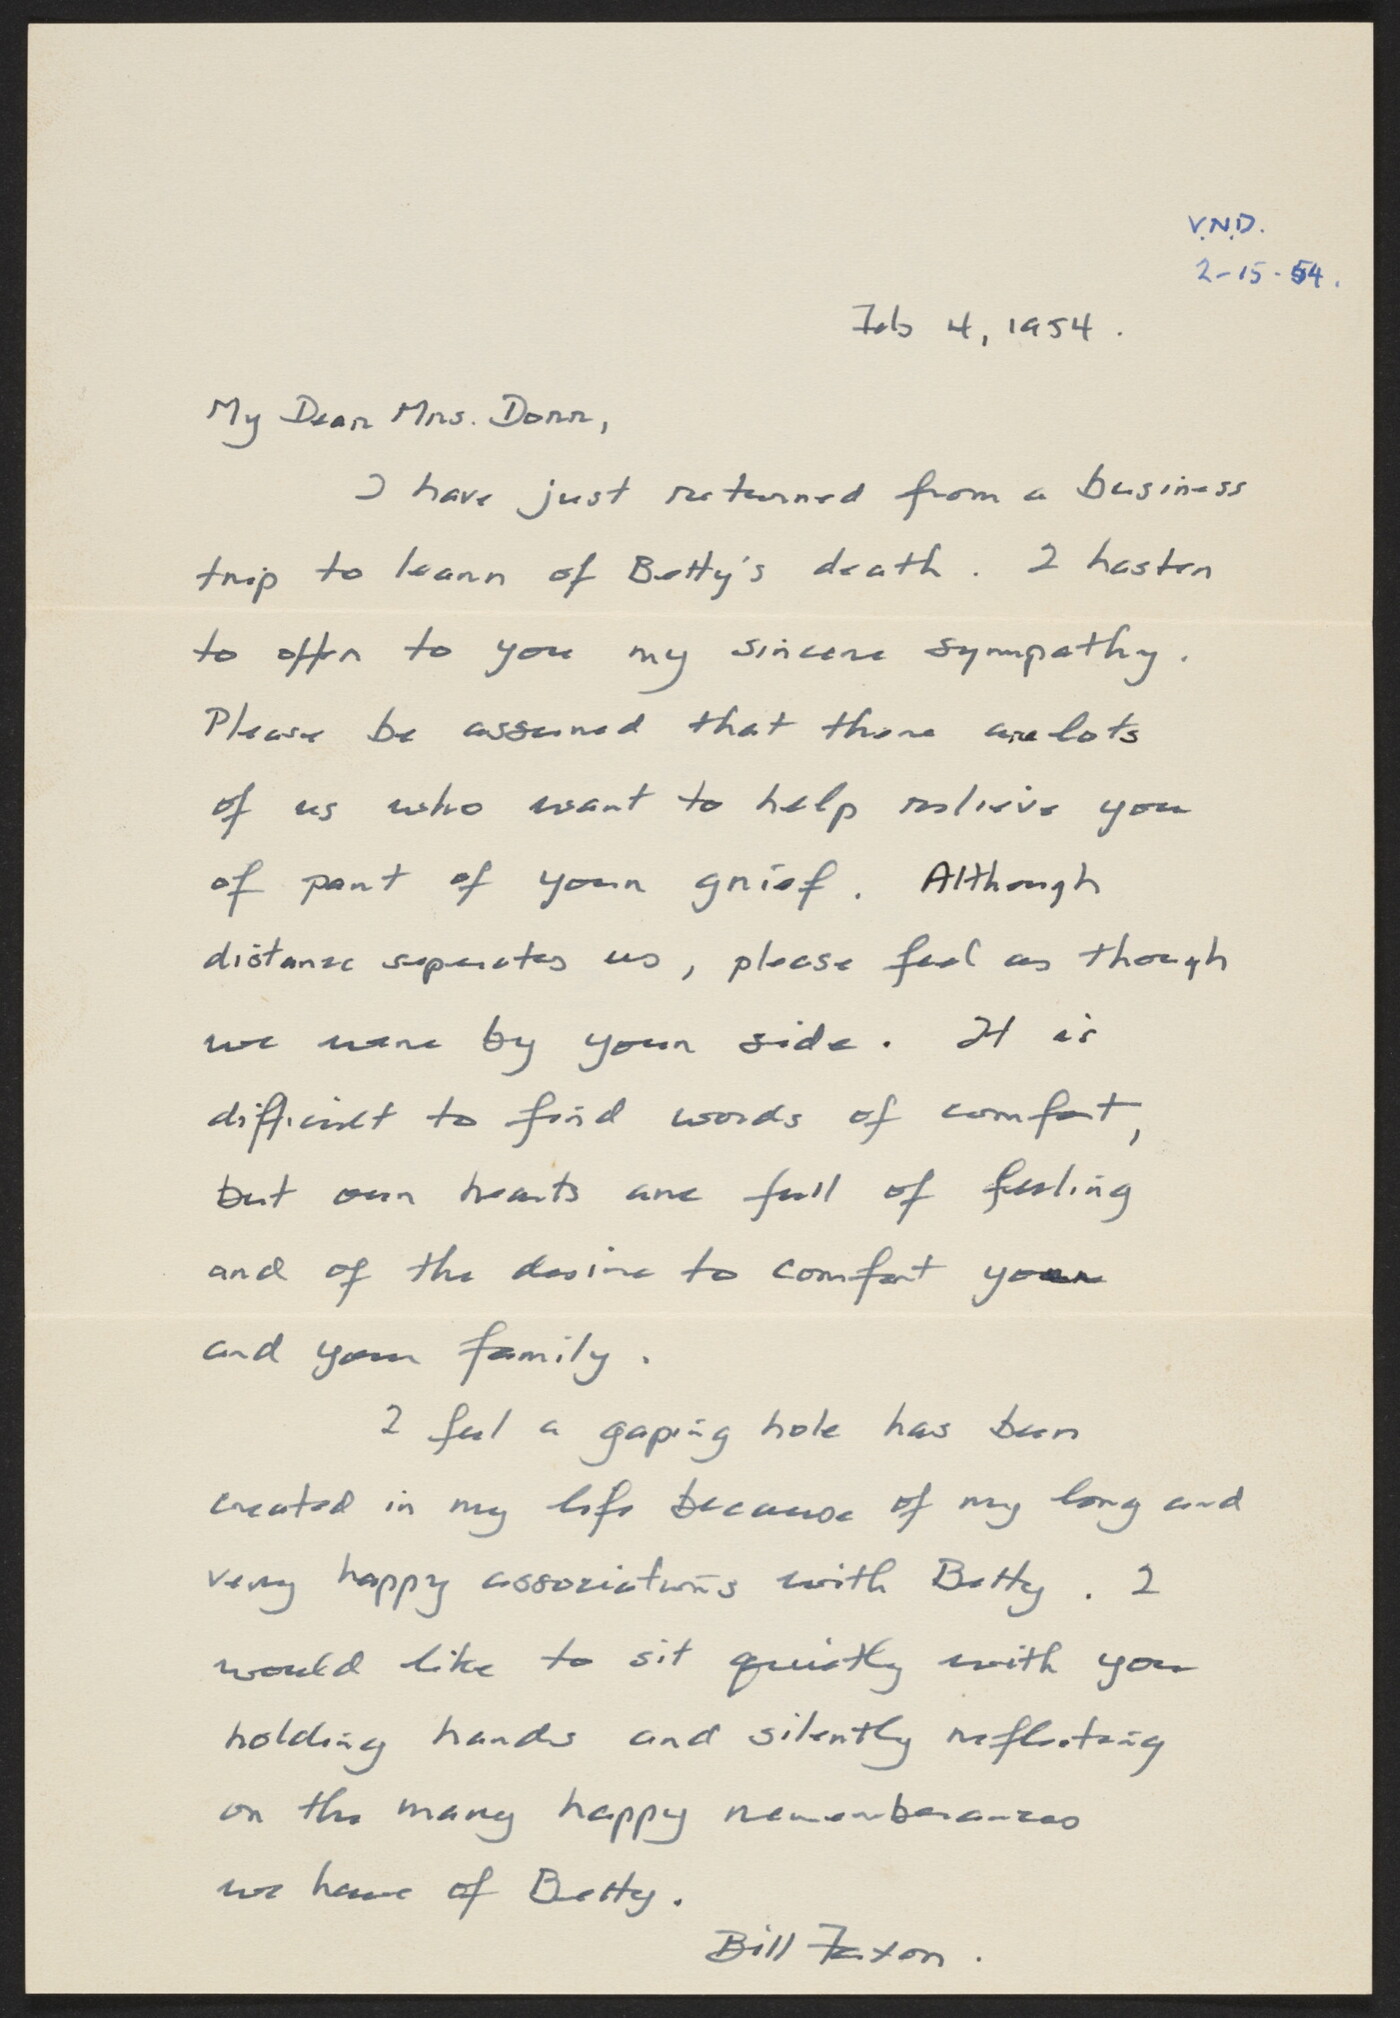 V.N.D.
2-15-54.
Feb 4, 1954.
My Dear Mrs. Dorr,
I have just returned from a business
trip to learn of Betty's death. I hasten
to offer to you my sincere sympathy.
Please be assured that there are lots
of us who want to help relieve you
of part of your grief. Although
distance seperates us, please feel as though
we were by your side. It is
difficult to find words of comfort,
but our hearts are full of feeling
and of the desire to comfort you
and your family.
I feel a gaping hole has been
created in my life because of my long and
very happy associations with Betty. I
would like to sit quietly with you
holding hands and silently reflecting
on the many happy rememberances
we have of Betty.
Bill Faxon.